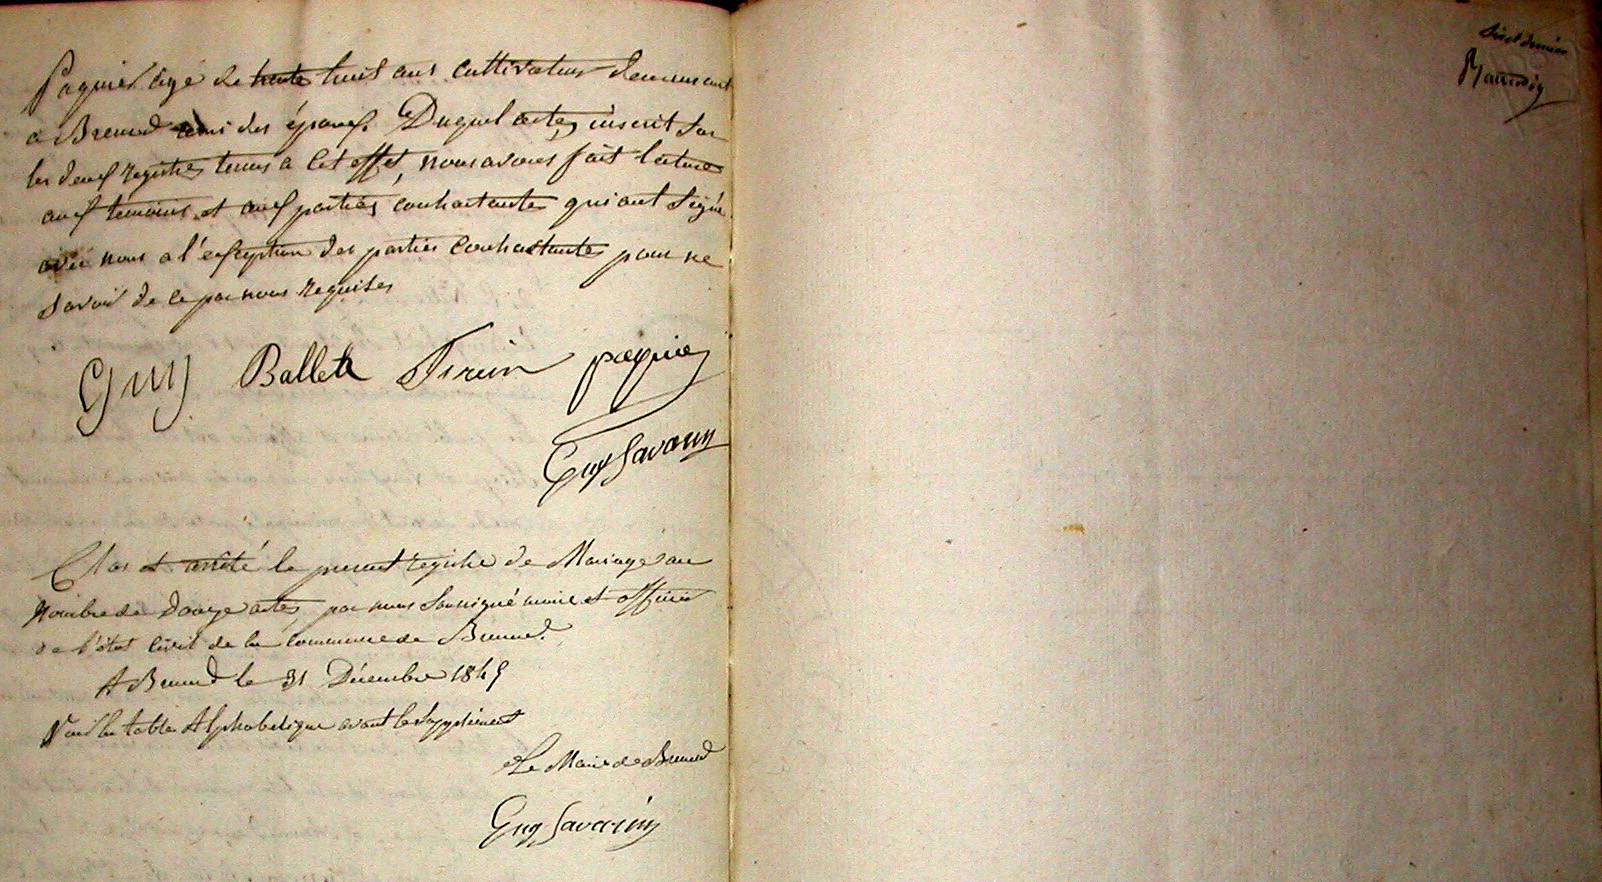 Paquier agé de trente huit ans cultivateur demeurant
a Brenod amis des époux. Duquel acte, inscrit sur
les deux registres tenus a cet effet, nous avons fait lecture
aux temoins et aux parties contractantes qui ont signé
avec nous a l'exception des parties contractantes pour ne
savoir de ce par nous requises
Guy Ballet Tirin paquier
Guy Savarin
Clos et arrêté le present registre de Mariage au
nombre de douze actes par nous soussigné maire et officier
de l'état civil de la commune de Brenod.
A Brenod le 31 Décembre 1845
Voir la table Alphabetique avant le supplément
Le Maire de Brenod
Guy Savarin
dernier